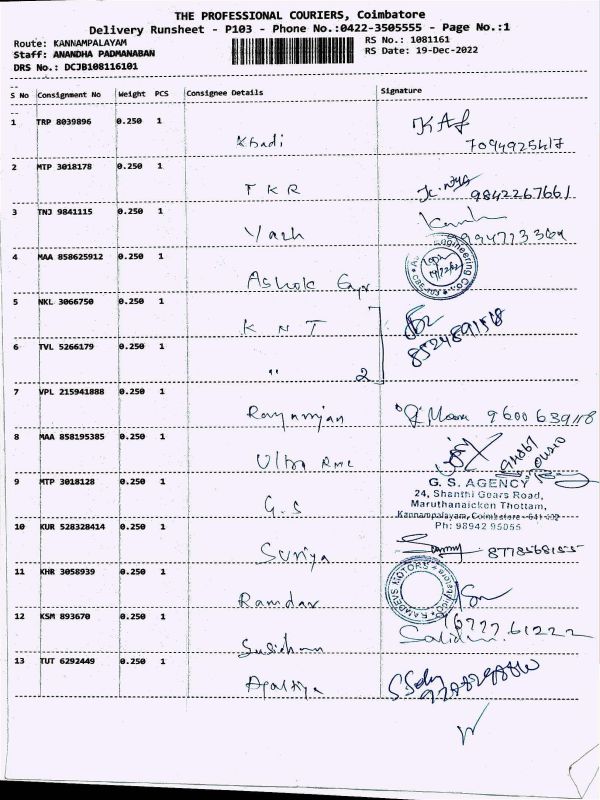 THE PROFESSIONAL COURIERS, Coimbatore
Delivery Runsheet - P103 - Phone No.:0422-3505555 - Page No.:1
Route: KANNAMPALAYAM RS No.: 1081161
Staff: ANANDHA PADMANABAN RS Date: 19-Dec-2022
DRS No.: DCJB108116101
S No Consignment No Weight PCS Consignee Details Signature
1 TRP 8039896 0.250 1
Khadi 7094925417
2 MTP 3018178 0.250 1
TKR 9842267661
3 TNJ 9841115 0.250 1
Yash
4 MAA 858625912 0.250 1
Ashok
5 NKL 3066750 0.250 1
KNT
6 TVL 5266179 0.250 1
" 2 8524891518
7 VPL 215941888 0.250 1
9600639118
8 MAA 858195385 0.250 1
Ultra RMC
9 MTP 3018128 0.250 1
G.S
G. S. AGENCY
24, Shanthi Gears Road,
Maruthanaicken Thottam,
Kannampalayam, Coimbatore - 641 402
Ph: 98942 95055
10 KUR 528328414 0.250 1
Suriya 8778568155
11 KHR 3058939 0.250 1
Ramdav
RAMDEVS MOTORS
12 KSM 893670 0.250 1
13 TUT 6292449 0.250 1